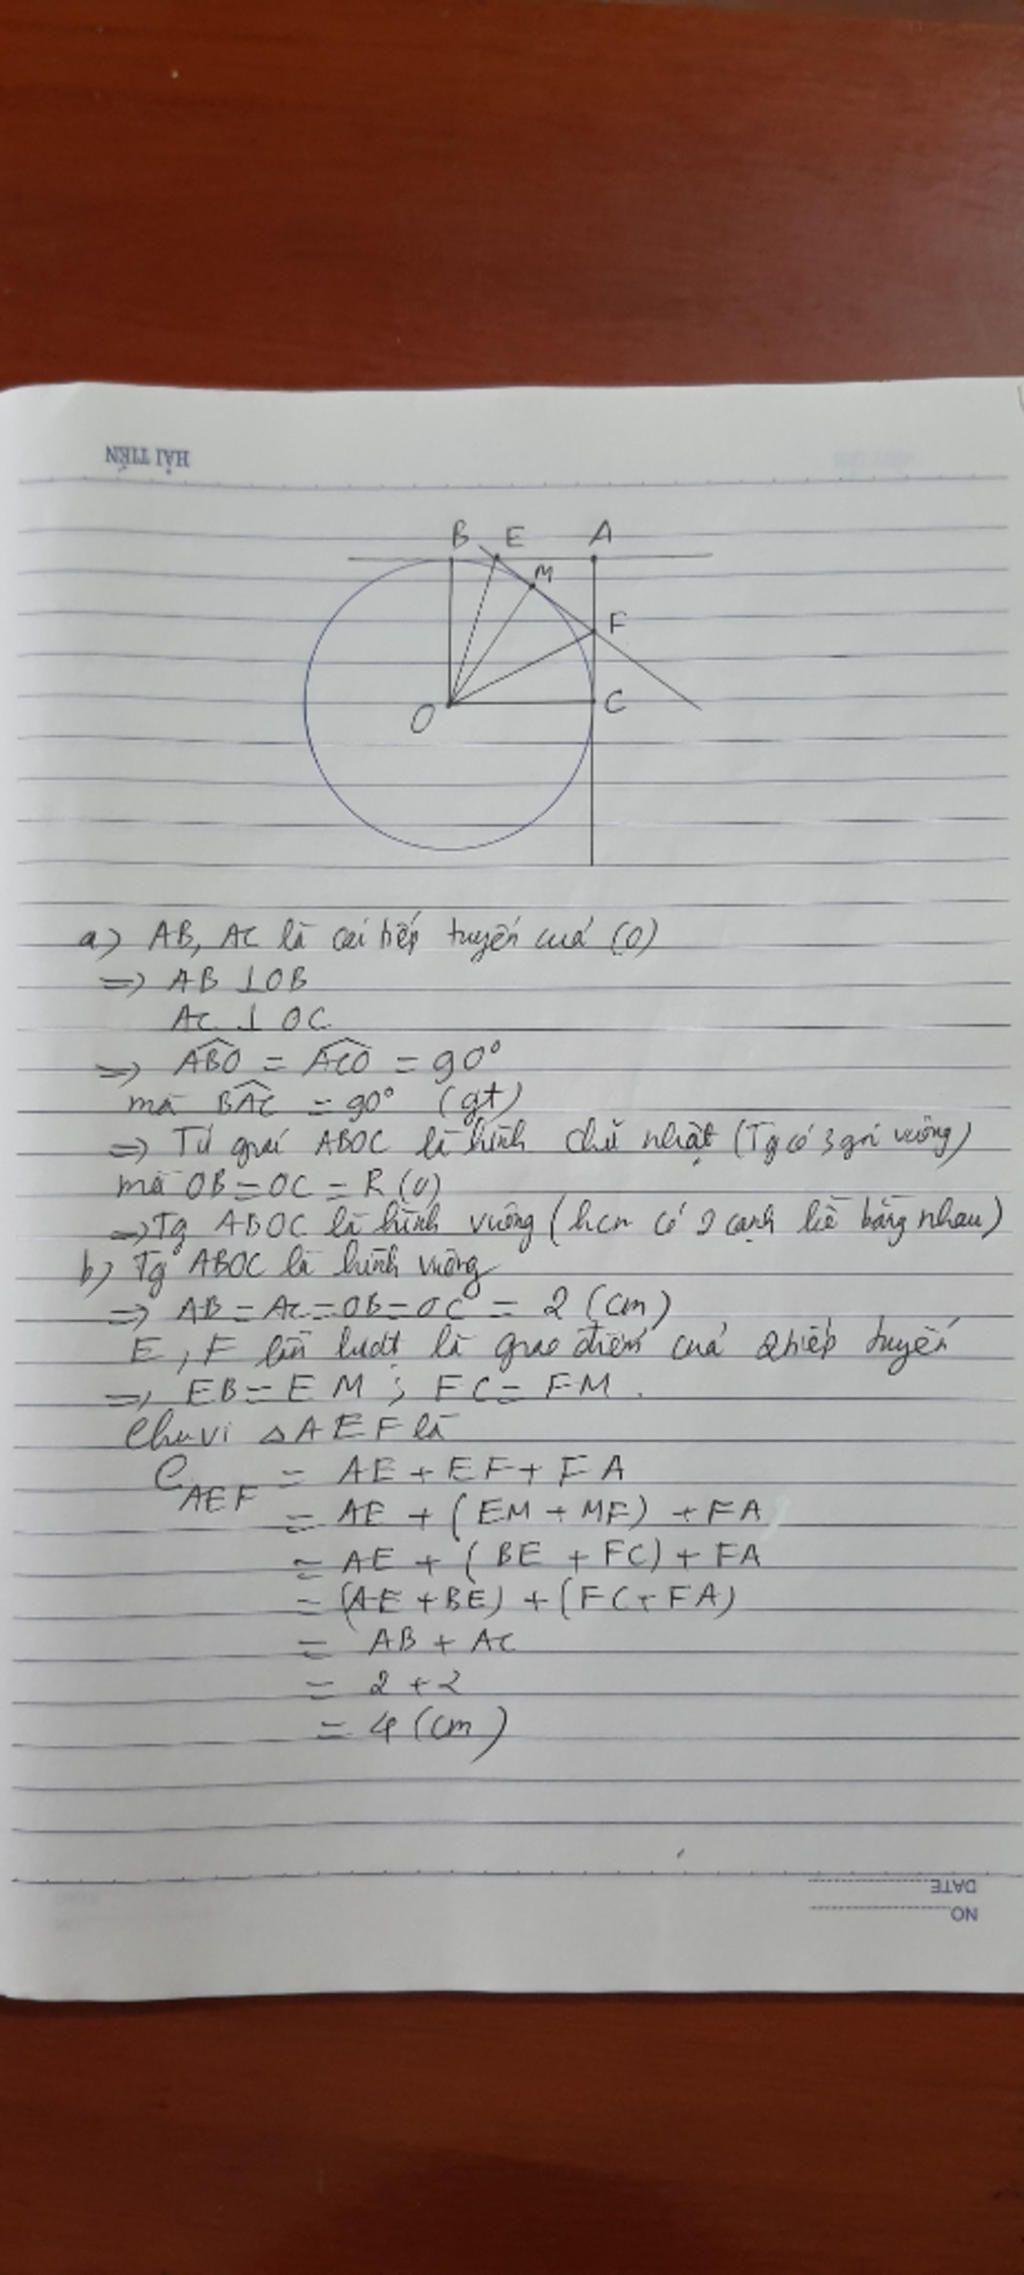 HẢI TIẾN
B E A
M
F
O C
a) AB, AC là các tiếp tuyến của (O)
=> AB ⊥ OB
AC ⊥ OC
=> \widehat{ABO} = \widehat{ACO} = 90°
mà \widehat{BAC} = 90° (gt)
=> Tứ giác ABOC là hình chữ nhật (Tg có 3 góc vuông)
mà OB = OC = R(O)
=> Tg ABOC là hình vuông (hcn có 2 cạnh kề bằng nhau)
b) Tg ABOC là hình vuông
=> AB = AC = OB = OC = 2 (cm)
E, F lần lượt là giao điểm của 2 tiếp tuyến
=> EB = EM ; FC = FM.
Chu vi △AEF là
C_{AEF} = AE + EF + FA
= AE + (EM + MF) + FA
= AE + (BE + FC) + FA
= (AE + BE) + (FC + FA)
= AB + AC
= 2 + 2
= 4 (cm)
DATE
NO